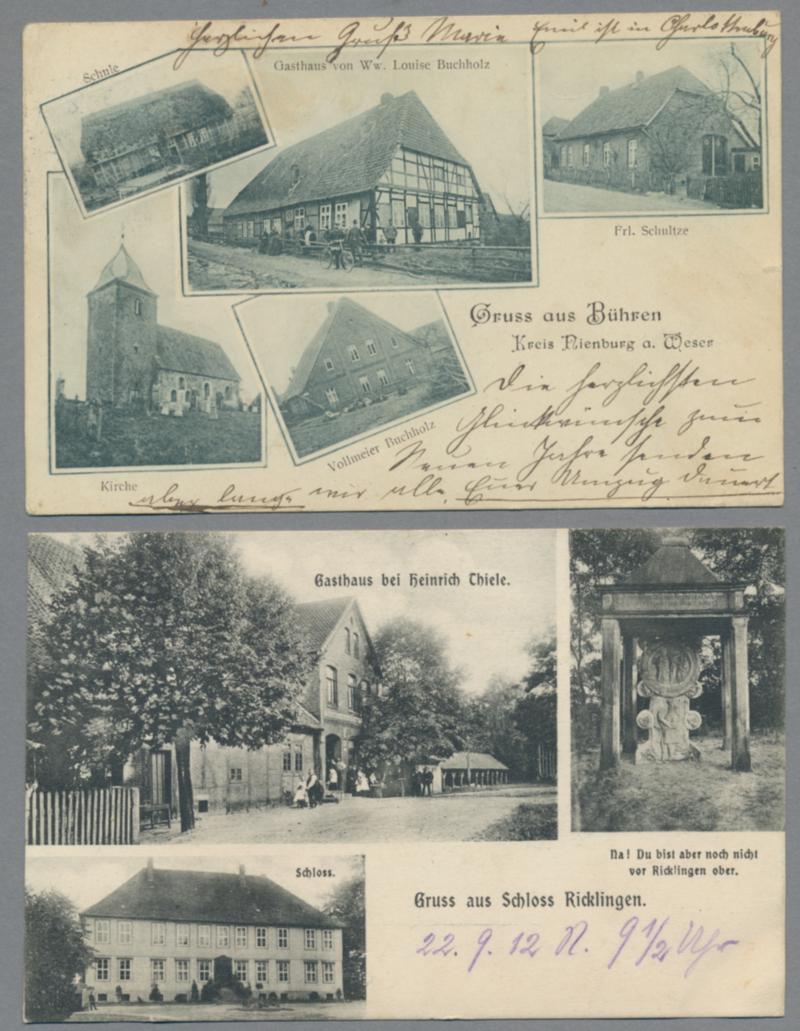 Herzlichen Gruß Marie Emil ist in Charlottenburg
Schule
Gasthaus von Ww. Louise Buchholz
Frl. Schultze
Gruss aus Bühren
Kreis Nienburg a. Weser
Die herzlichsten
Glückwünsche zum
Neuen Jahre senden
wir alle. Euer Umzug dauert
aber lange
Vollmeier Buchholz
Kirche
Gasthaus bei Heinrich Thiele.
Na! Du bist aber noch nicht
vor Ricklingen ober.
Schloss.
Gruss aus Schloss Ricklingen.
22. 9. 12 N. 9 1/2 Uhr